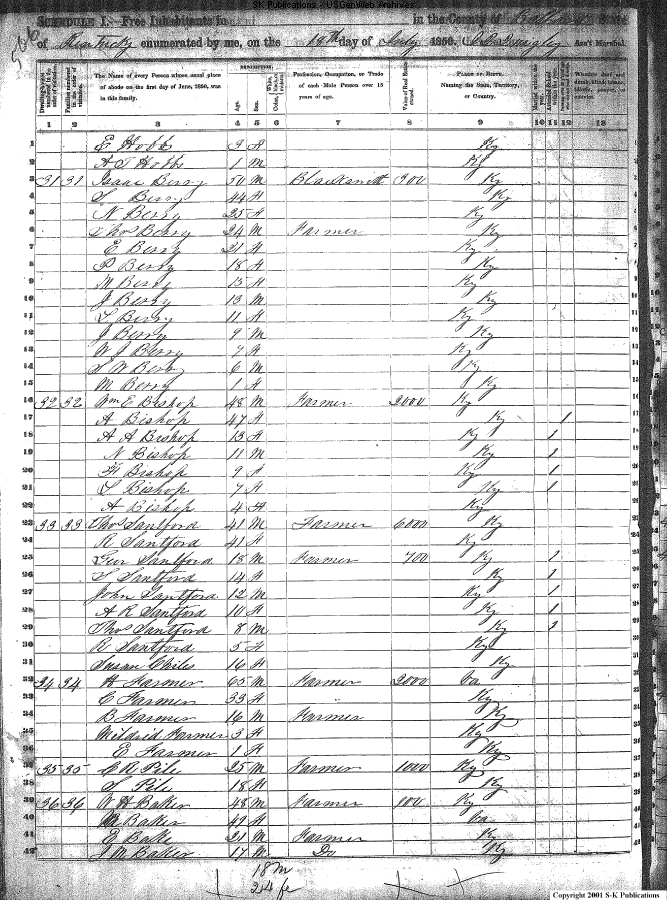 S-K Publications - USGenWeb Archives
SCHEDULE I.—Free Inhabitants in in the County of State
of Kentucky enumerated by me, on the 18th day of July 1850. Ass't Marshal.
DESCRIPTION.
Dwelling-houses numbered in the order of visitation.
Families numbered in the order of visitation.
The Name of every Person whose usual place of abode on the first day of June, 1850, was in this family.
Age. Sex. Color,
Profession, Occupation, or Trade of each Male Person over 15 years of age.
Value of Real Estate owned.
PLACE OF BIRTH. Naming the State, Territory, or Country.
Married within the year.
Attended School within the year.
Whether deaf and dumb, blind, insane, idiotic, pauper, or convict.
1 2 3 4 5 6 7 8 9 10 11 12 13
1 E Hobbs 3 f Ky
2 A T Hobbs 1 m Ky
3 31 31 Isaac Berry 50 m Blacksmith 300 Ky
4 S Berry 44 f Ky
5 N Berry 25 f Ky
6 Thos Berry 24 m Farmer Ky
7 E Berry 21 f Ky
8 P Berry 18 f Ky
9 M Berry 15 f Ky
10 J Berry 13 m Ky
11 L Berry 11 f Ky
12 J Berry 9 m Ky
13 W J Berry 7 f Ky
14 S W Berry 6 m Ky
15 M Berry 1 f Ky
16 32 32 Wm E Bishop 48 m Farmer 2000 Ky
17 A Bishop 47 f Ky 1
18 A A Bishop 13 f Ky 1
19 N Bishop 11 m Ky 1
20 Bishop 9 f Ky 1
21 S Bishop 7 f Ky 1
22 A Bishop 4 f Ky
23 33 33 Thos Santford 41 m Farmer 6000 Ky
24 R Santford 41 f Ky
25 Geo Santford 18 m Farmer 700 Ky 1
26 S Santford 14 f Ky 1
27 John Santford 12 m Ky 1
28 A R Santford 10 f Ky 1
29 Thos Santford 8 m Ky 1
30 R Santford 5 f Ky
31 Susan Chiles 16 f Ky
32 34 34 H Farmer 65 m Farmer 2000 Va
33 C Farmer 33 f " Ky
34 B Farmer 16 m Farmer Ky
35 Mildrid Farmer 3 f Ky
36 E Farmer 1 f Ky
37 35 35 C R Pile 25 m Farmer 1000 Ky
38 S Pile 18 f Ky
39 36 36 W H Baker 48 m Farmer 100 Ky
40 M Baker 49 f Va
41 E Bake 21 m Farmer Ky
42 J M Baker 17 m Do Ky
18 m
24 fe
Copyright 2001 S-K Publications